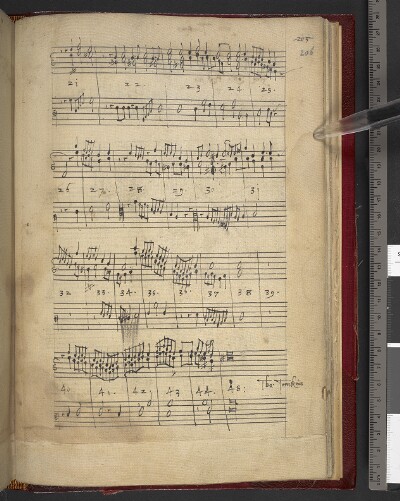 205
206
21 22 23 24 25.
26 27. 28 29. 30 31
32 33. 34. 35. 36. 37 38 39.
40 41. 42 43 44. 45:
Tho: Tomkins